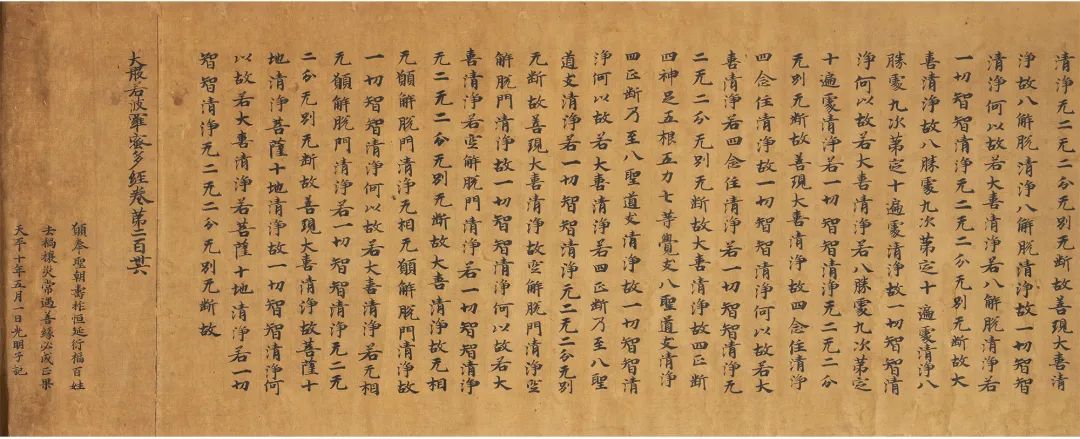 清淨无二无二分无別无斷故善現大喜清
淨故八解脫清淨八解脫清淨故一切智智
清淨何以故若大喜清淨若八解脫清淨若
一切智智清淨无二无二分无別无斷故大
喜清淨故八勝處九次第定十遍處清淨八
勝處九次第定十遍處清淨故一切智智清
淨何以故若大喜清淨若八勝處九次第定
十遍處清淨若一切智智清淨无二无二分
无別无斷故善現大喜清淨故四念住清淨
四念住清淨故一切智智清淨何以故若大
喜清淨若四念住清淨若一切智智清淨无
二无二分无別无斷故大喜清淨故四正斷
四神足五根五力七等覺支八聖道支清淨
四正斷乃至八聖道支清淨故一切智智清
淨何以故若大喜清淨若四正斷乃至八聖
道支清淨若一切智智清淨无二无二分无別
无斷故善現大喜清淨故空解脫門清淨空
解脫門清淨故一切智智清淨何以故若大
喜清淨若空解脫門清淨若一切智智清淨
无二无二分无別无斷故大喜清淨故无相
无願解脫門清淨无相无願解脫門清淨故
一切智智清淨何以故若大喜清淨若无相
无願解脫門清淨若一切智智清淨无二无
二分无別无斷故善現大喜清淨故菩薩十
地清淨菩薩十地清淨故一切智智清淨何
以故若大喜清淨若菩薩十地清淨若一切
智智清淨无二无二分无別无斷故
大般若波羅蜜多經卷第二百廿六
願奉聖朝壽祚恒延衍福百姓
去禍禳災常遇善緣必成正果
天平十年五月一日光明子記